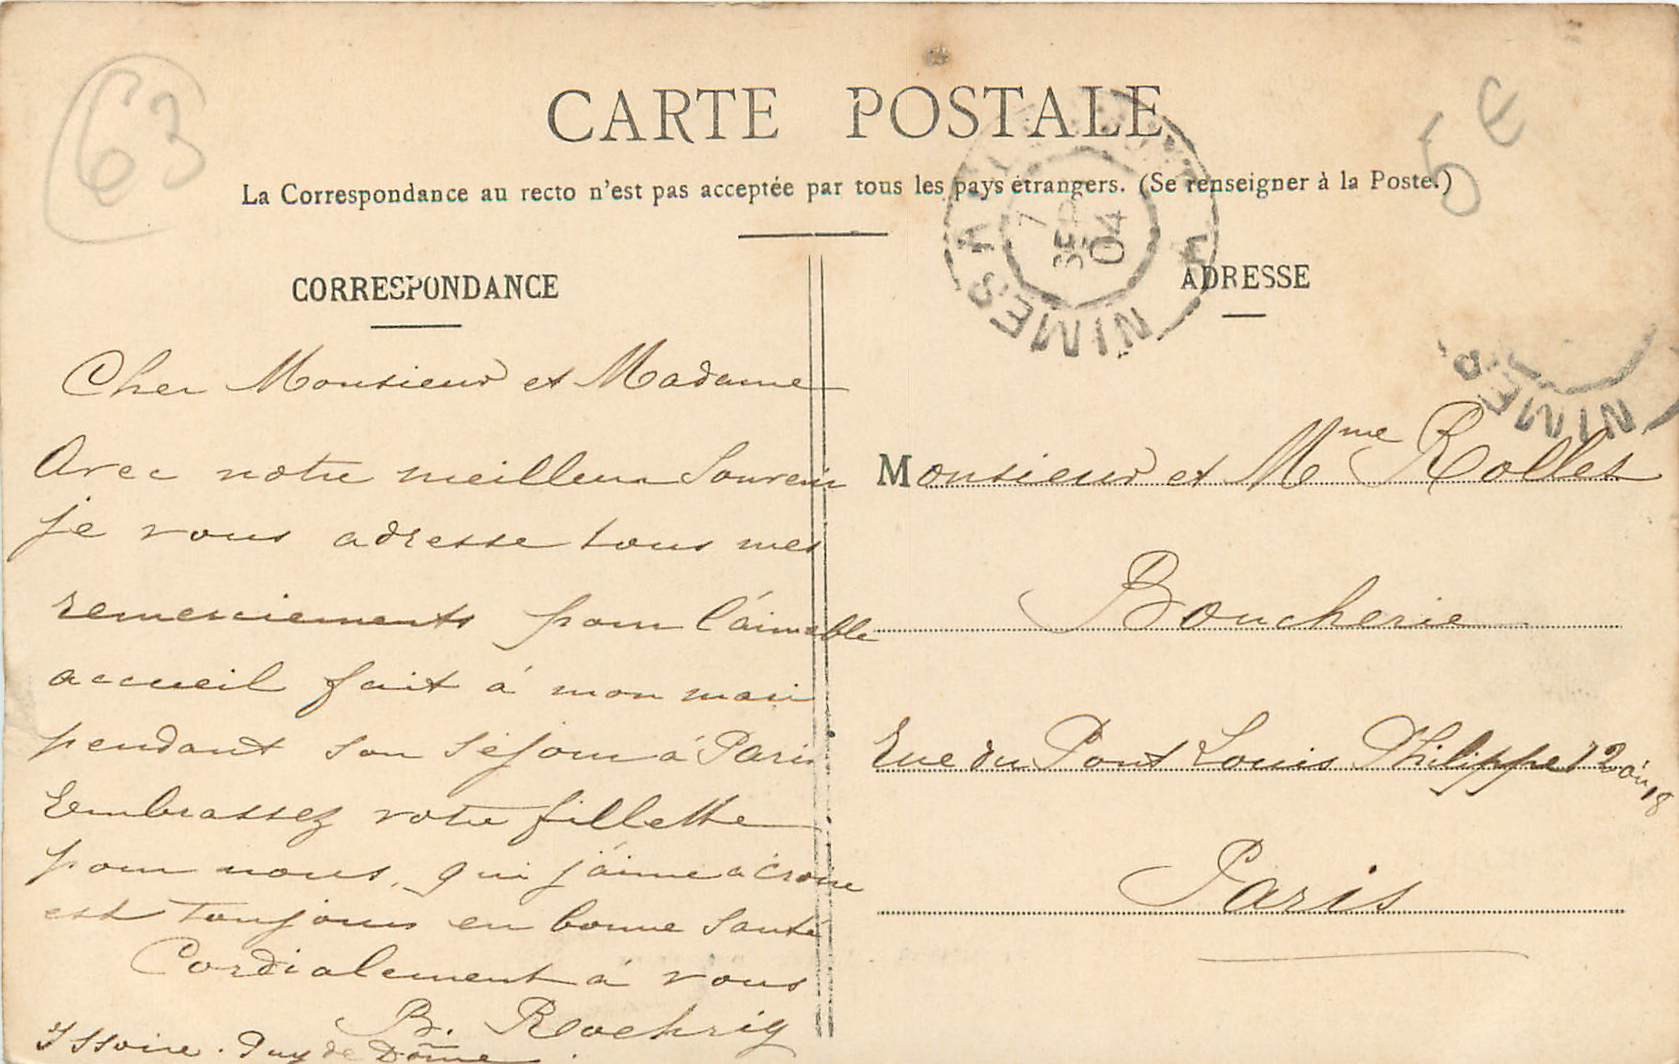 63
5€
CARTE POSTALE
La Correspondance au recto n'est pas acceptée par tous les pays étrangers. (Se renseigner à la Poste.)
7
SEP
04
NIMES A
NIMES
CORRESPONDANCE
Cher Monsieur et Madame
Avec notre meilleur Souvenir
je vous adresse tous mes
remerciements pour l'aimable
accueil fait à mon mari
pendant son séjour à Paris
Embrassez votre fillette
pour nous, qui j'aime à croire
est toujours en bonne santé
Cordialement à vous
B. Roehrig
Issoire. Puy de Dôme
ADRESSE
Monsieur et Mme Rollet
Boucherie
Rue du Pont Louis Philippe 12 où 18
Paris